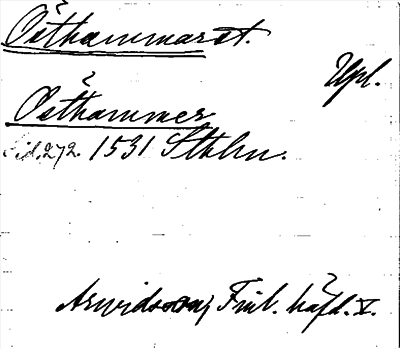 Östhammar st.
Upl.
Östhammer
Sid. 272. 1531 Sthlm.
Arwidsson, Finl. häfd. V.